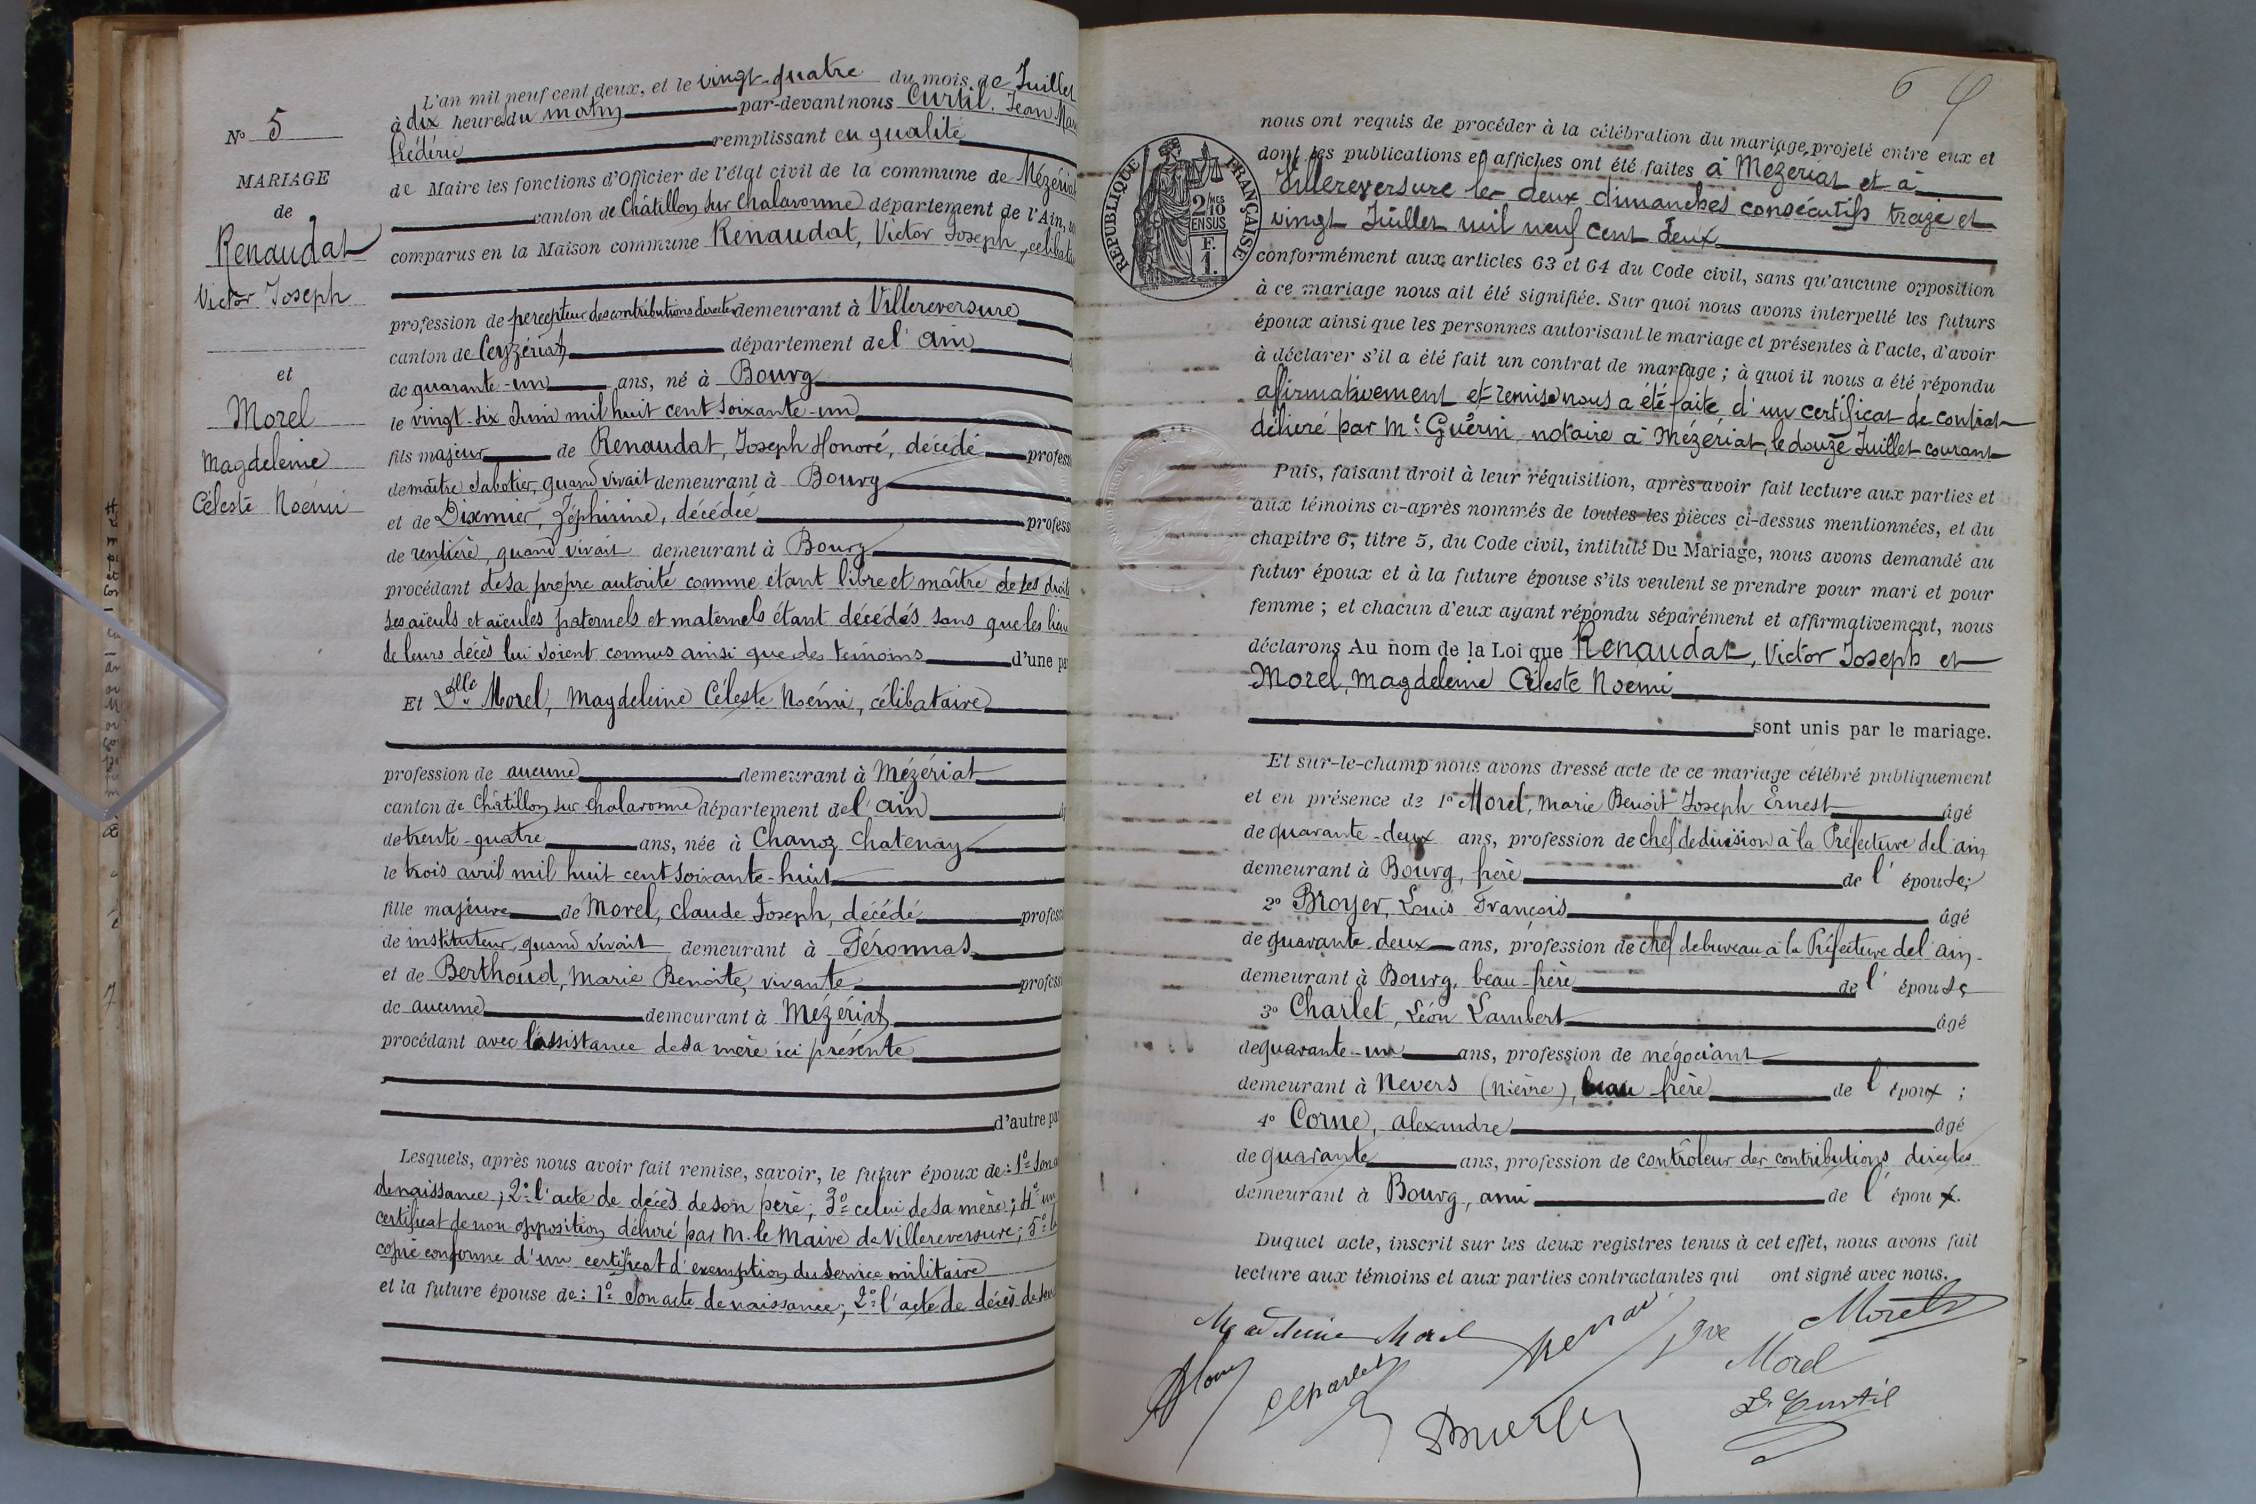 N° 5
MARIAGE
de
Renaudat
Victor Joseph
et
Morel
Magdeleine
Céleste Noémi
L'an mil neuf cent deux, et le vingt-quatre du mois de Juillet
à dix heures du matin par-devant nous Curtil, Jean Mar
frédéric remplissant en qualité
de Maire les fonctions d'Officier de l'état civil de la commune de Mézériat
canton de Châtillon sur Chalaronne département de l'Ain,
comparus en la Maison commune Renaudat, Victor Joseph, célibatai
profession de percepteur des contributions directes demeurant à Villereversure
canton de Ceyzériat département de l'ain
de quarante-un ans, né à Bourg
le vingt-six Juin mil huit cent soixante-un
fils majeur de Renaudat, Joseph Honoré, décédé profess
de maître sabotier, quand vivait demeurant à Bourg
et de Duxmier, Zéphirine, décédée profess
de rentière, quand vivait demeurant à Bourg
procédant de sa propre autorité comme étant libre et maître de ses droits
ses aïeuls et aïeules paternels et maternels étant décédés sans que les lieu
de leurs décès lui soient connus ainsi que des temoins d'une pa
Et Dlle Morel, Magdeleine Céleste Noémi, célibataire
profession de aucune demeurant à Mézériat
canton de Châtillon sur chalaronne département de l'ain
de trente-quatre ans, née à Chanoz Chatenay
le trois avril mil huit cent soixante-huit
fille majeure de Morel, claude Joseph, décédé profess
de instituteur, quand vivait demeurant à Péronnas
et de Berthoud, Marie Benoîte, vivante profess
de aucune demeurant à Mézériat
procédant avec l'assistance de sa mère ici présente
d'autre pa
Lesquels, après nous avoir fait remise, savoir, le futur époux de: 1° Son a
de naissance; 2° l'acte de décès de son père; 3° celui de sa mère; 4° un
certificat de non opposition délivré par M. le Maire de Villereversure; 5° la
copie conforme d'un certificat d'exemption du service militaire
et la future épouse de: 1° Son acte de naissance; 2° l'acte de décès de son
6
nous ont requis de procéder à la célébration du mariage projeté entre eux et
dont les publications et affiches ont été faites à Mézériat et à
Villereversure les deux dimanches consécutifs treize et
vingt Juillet mil neuf cent deux
RÉPUBLIQUE FRANÇAISE
2/MES 10 EN SUS
F. 1.
conformément aux articles 63 et 64 du Code civil, sans qu'aucune opposition
à ce mariage nous ait été signifiée. Sur quoi nous avons interpellé les futurs
époux ainsi que les personnes autorisant le mariage et présentes à l'acte, d'avoir
à déclarer s'il a été fait un contrat de mariage; à quoi il nous a été répondu
afirmativement et remise nous a été faite d'un certificat de contrat
délivré par Me Guérin notaire à Mézériat, le douze Juillet courant
Puis, faisant droit à leur réquisition, après avoir fait lecture aux parties et
aux témoins ci-après nommés de toutes les pièces ci-dessus mentionnées, et du
chapitre 6, titre 5, du Code civil, intitulé Du Mariage, nous avons demandé au
futur époux et à la future épouse s'ils veulent se prendre pour mari et pour
femme; et chacun d'eux ayant répondu séparément et affirmativement, nous
déclarons Au nom de la Loi que Renaudat, Victor Joseph et
Morel, Magdeleine Céleste Noemi
sont unis par le mariage.
Et sur-le-champ nous avons dressé acte de ce mariage célébré publiquement
et en présence de 1° Morel, Marie Benoît Joseph Ernest âgé
de quarante-deux ans, profession de chef de division à la Préfecture de l'ain
demeurant à Bourg, frère de l'épouse;
2° Broyer, Louis François âgé
de quarante-deux ans, profession de chef de bureau à la Préfecture de l'ain
demeurant à Bourg, beau-frère de l'épouse
3° Charlet, Léon Lambert âgé
de quarante-un ans, profession de négociant
demeurant à Nevers (Nièvre), beau frère de l'époux;
4° Corne, alexandre âgé
de quarante ans, profession de contrôleur des contributions directes
demeurant à Bourg, ami de l'époux.
Duquel acte, inscrit sur les deux registres tenus à cet effet, nous avons fait
lecture aux témoins et aux parties contractantes qui ont signé avec nous.
Magdeleine Morel
Morel
Charlet
Morel
Curtil